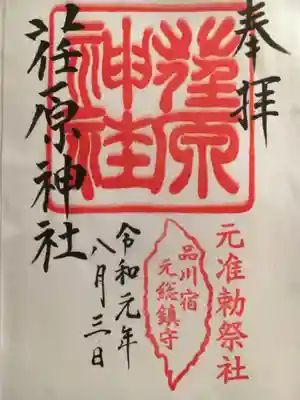 奉拝
元准勅祭社
荏原神社
品川宿
元総鎮守
令和元年
八月三日
荏原神社